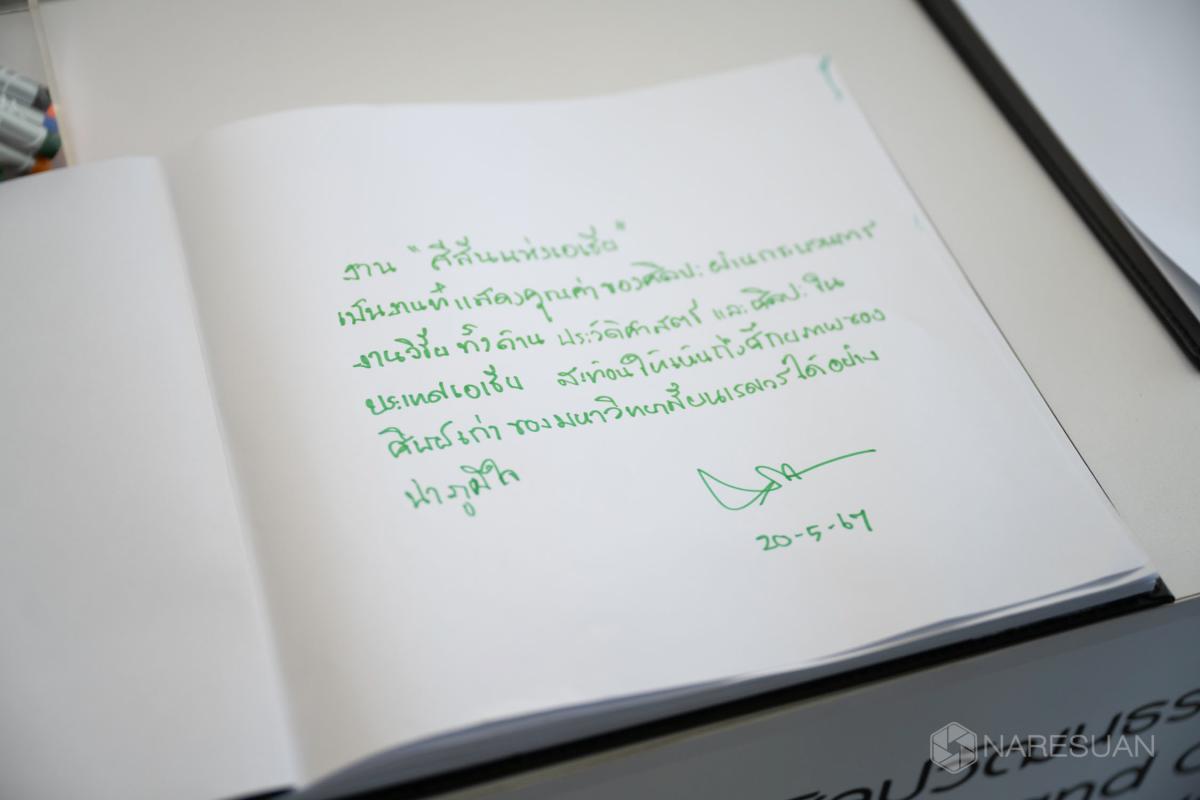 งาน "สีสันแห่งเอเชีย"
เป็นงานที่แสดงคุณค่าของศิลปะ ผ่านกระบวนการ
งานวิจัย ทั้งด้าน ประวัติศาสตร์ และศิลปะ ใน
ประเทศเอเชีย สะท้อนให้เห็นถึงศักยภาพของ
ศิษย์เก่า ของมหาวิทยาลัยนเรศวรได้อย่าง
น่าภูมิใจ
20-5-67
NARESUAN
and